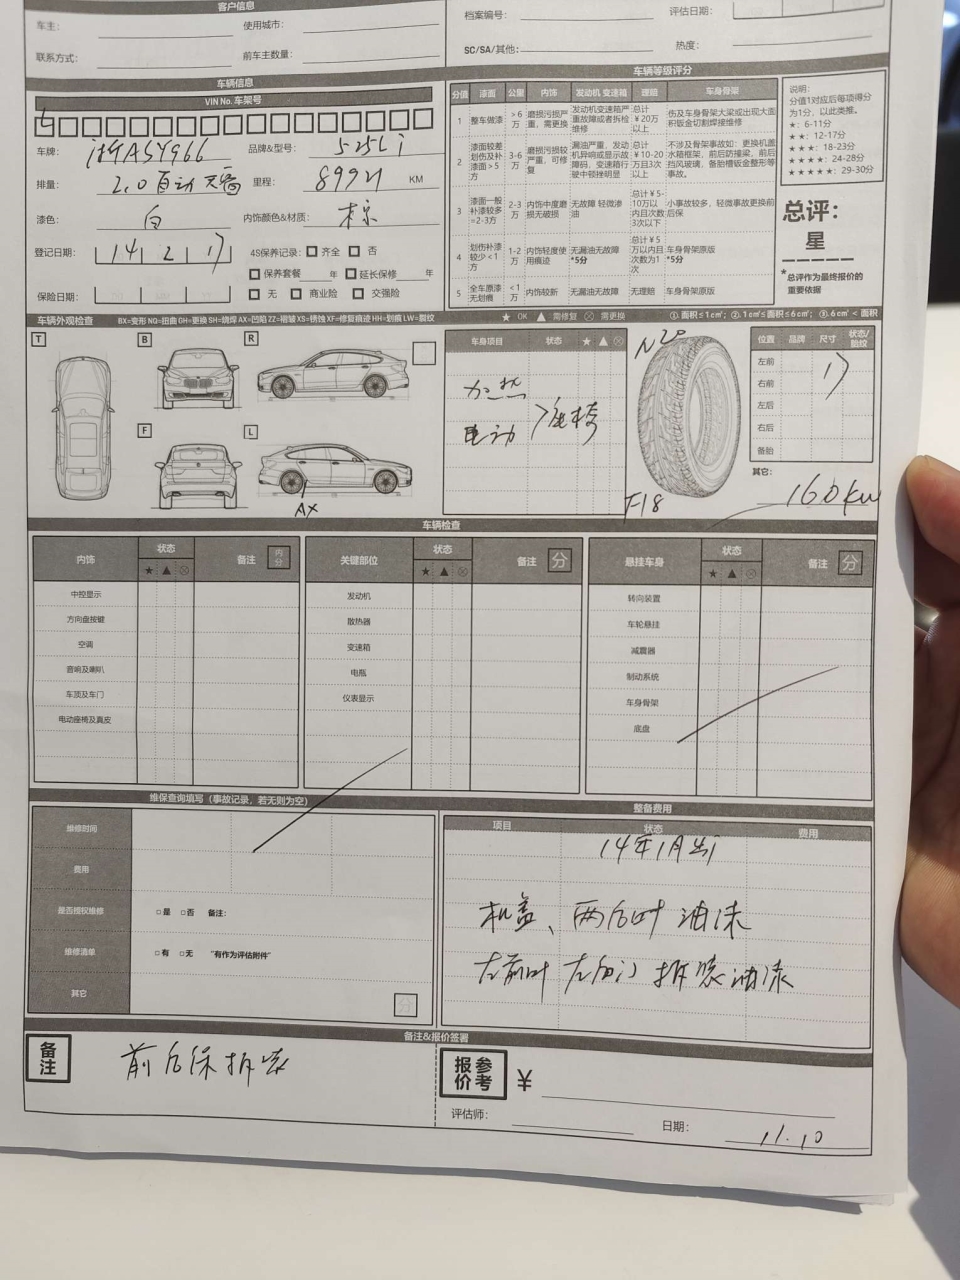 客户信息
车主： 使用城市：
联系方式： 前车主数量：
档案编号： 评估日期：
SC/SA/其他： 热度：
车辆信息
VIN No. 车架号
品牌&型号： 525Li
车牌：
排量： 2.0自动天窗 里程： 89921 KM
漆色： 白 内饰颜色&材质： 棕
登记日期： 14 2 17 4S保养记录： □齐全 □否
□保养套餐 年 □延长保修 年
保险日期： □无 □商业险 □交强险
车辆等级评分
分值 漆面 公里 内饰 发动机 变速箱 理赔 车身骨架
1 整车做漆 >6万 磨损污损严重，需更换 发动机变速箱严重故障或者拆检维修 总计￥20万以上 伤及车身骨架大梁或出现大面积钣金切割焊接维修
2 漆面较差划伤及补漆面>5方 3-6万 磨损污损较严重，可修复 漏油严重，发动机异响或显示故障码，变速箱行驶中顿挫明显 总计￥10-20万且3次以上 不涉及骨架事故如：更换机盖水箱框架，前后防撞梁，前后挡风玻璃，备胎槽钣金整形等事故。
3 漆面一般补漆较多=2-3方 2-3万 内饰中度磨损无破损 无故障 轻微渗油 总计￥5-10万以内且次数3次以下 小事故较多，轻微事故更换前后保
4 划伤补漆较少<1方 1-2万 内饰轻度使用痕迹 无漏油无故障*5分 总计￥5万以内且次数为1次 车身骨架原版*5分
5 全车原漆无划痕 <1万 内饰较新 无漏油无故障 无理赔 车身骨架原版
说明：
分值1对应后每项得分为1分，以此类推。
★：6-11分
★★：12-17分
★★★：18-23分
★★★★：24-28分
★★★★★：29-30分
总评：
星
*总评作为最终报价的重要依据
车辆外观检查 BX=变形 NQ=扭曲 GH=更换 SH=烧焊 AX=凹陷 ZZ=褶皱 XS=锈蚀 XF=修复痕迹 HH=划痕 LW=裂纹 ★ OK ▲ 需修复 ⊗ 需更换 ①. 面积≤1cm²；②. 1cm²≤面积≤6cm²；③. 6cm²<面积
T B R
F L
AX
车身项目 状态 ★ ▲ ⊗
加热
电动 >座椅
N20
F18
位置 品牌 尺寸 状态/胎纹
左前 17
右前
左后
右后
备胎
其它： 160kw
车辆检查
内饰 状态 备注 内分
★ ▲ ⊗
中控显示
方向盘按键
空调
音响及喇叭
车顶及车门
电动座椅及真皮
关键部位 状态 备注 分
★ ▲ ⊗
发动机
散热器
变速箱
电瓶
仪表显示
悬挂车身 状态 备注 分
★ ▲ ⊗
转向装置
车轮悬挂
减震器
制动系统
车身骨架
底盘
维保查询填写（事故记录，若无则为空）
维修时间
费用
是否授权维修 □是 □否 备注：
维修清单 □有 □无 "有作为评估附件"
其它 分
整备费用
项目 状态 费用
14年1月出厂
机盖、两后叶 油漆
左前叶 左后门 拆装油漆
备注&报价签署
备注 前后保拆装
参考报价 ￥
评估师： 日期： 11.10